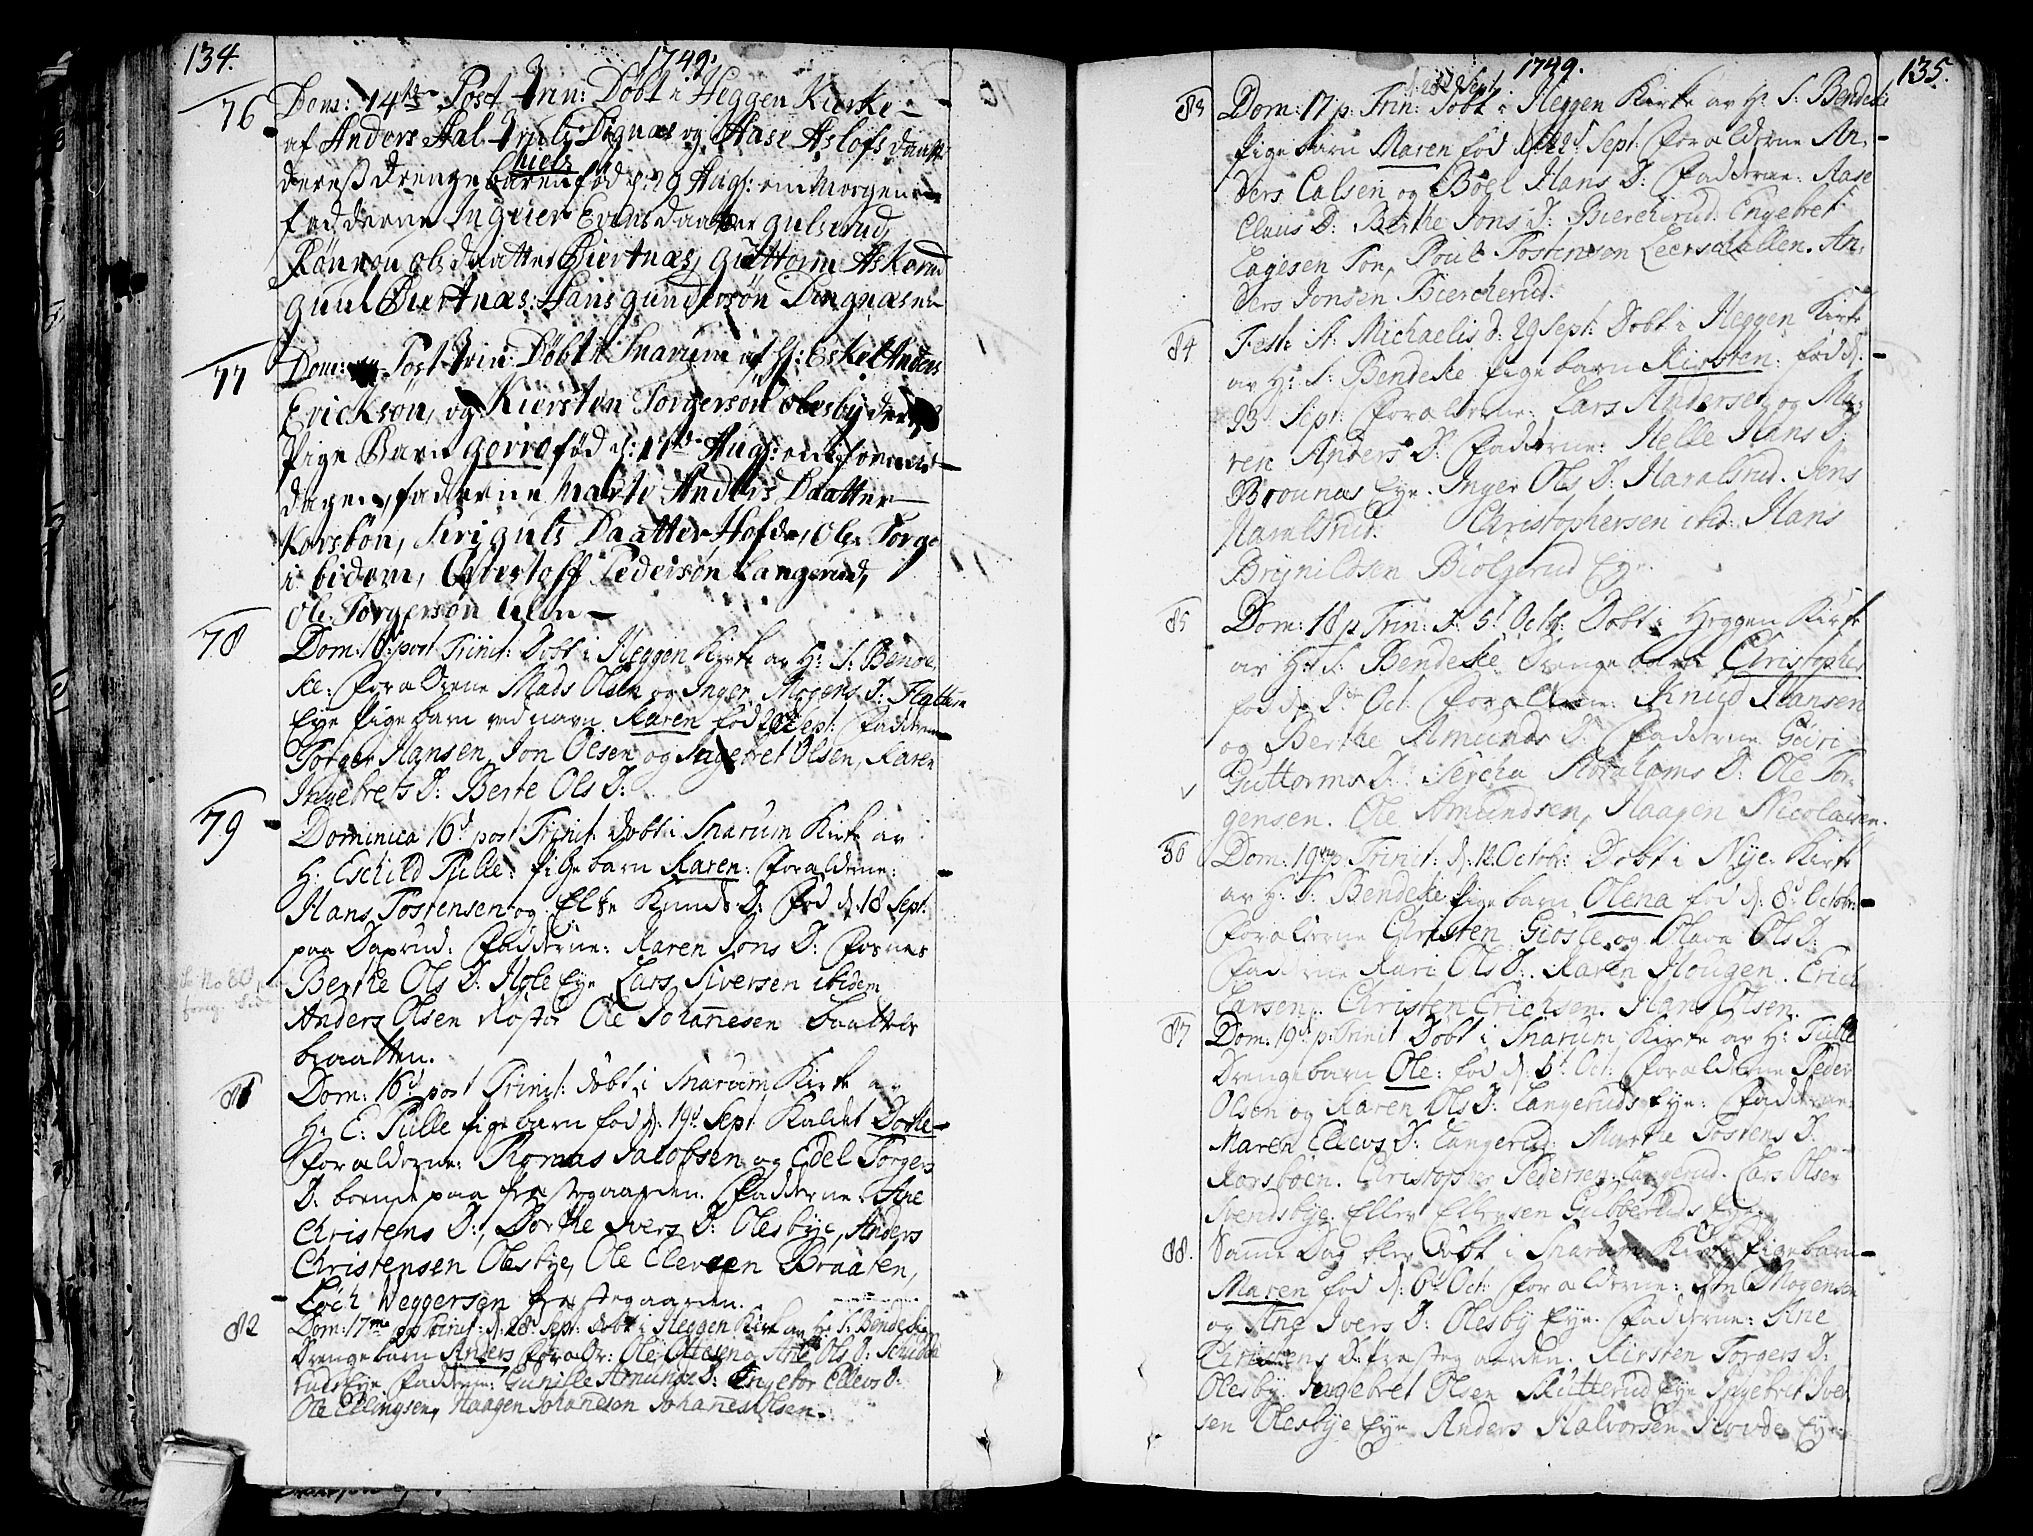 134.
1749.
76 Dom: 14de Post Trin: Døbt i Heggen Kirke
af Anders Aal Dignæs og Aase Aslofs daatt
deres drengebaren Niels fød d: 29 Aug: om Morgenen
fadderne Ingeier Evens daatter gulsrud
Rönnou ols daatter Biertnæs, Guttorm Askerud
guul Biertnæs: Hans gundersøn Dingnæs
77 Dom: Post Trin: Døbt i Snarum af H: Eskel Anders
Erickson, og Kiersten Torgersøn olesby deres
Pige Barn gorro fød d: 17de Aug: om formid-
dagen, fadderne Marte Anders Daatter
Korsbøn, Siri guls Daatter Hofde, Ole Torge
ibidem, Christoff Pedersøn Langerud,
Ole Torgersøn Ulen
78 Dom: 16d post Trinit: Døbt i Heggen Kirke av H: S: Bende
ke: Foraldrene Mads Olsen og Inger Mogens D: Flattum
Eye Pigebarn ved navn Karen fød Sept: Fadderne
Torger Hansen, Jon Olsen og Ingebret Olsen, Karen
Ingebrets D: Berte Ols D:
79 Dominica 16d post Trinit: døbt i Snarum Kirke av
H: Eschild Tulle: Pigebarn Karen: Forælderne:
Hans Tostensen og Else Knuds D: Fød d: 18 Sept:
paa Daprud: Fadderne: Karen Jons D: Fosnes
Berthe Ols D: Hole Eye Lars Siversen ibidem
Anders Olsen Ole Johannesen Baatten
braatten.
81 Dom: 16d post Trinit: døbt i Snarum Kirke av
H: E: Tulle Pigebarn fød d: 19d Sept Kaldet Dorthe
Forælderne: Thomas Jacobsen og Edel Torgers
D: boende paa Præstegaarden. Fadderne: Ane
Christens D:, Dorthe Ivers D: Olesbye, Anders
Christensen Olesbye, Ole Elevsen Braaten,
Erich Weggersen Præstegaarden.
82 Dom: 17me p Trinit: d: 28 Sept: Døbt i Heggen Kirke av H: S: Bendeke
Drengebarn Anders Foræ Dr: Ole Ottesen og Ane Ols D:
ruds Eye Fadderne: Gunille Amunds D: Engebor Ellevs D:
Ole Ellingsen, Haagen Johanesen Johanes Olsen.
1749.
135.
d: 28 Sept
83 Dom: 17 p: Trin: Døbt i Heggen Kirke av H: S: Bendeke
Pigebarn Maren fød d: 22d Sept: Forælderne An-
ders Calsen og Böel Hans D: Fadderne: Aase
Claus D: Berthe Jons D: Biercherud Engebret
Eagesen Ton, Poul Tostensen Leersdallen. An-
ders Jonsen Biercherud.
84 Fest: St: Michaelis d: 29 Sept: Døbt i Heggen Kirke
av H: S: Bendeke Pigebarn Kirsten: fød d:
23 Sept: Forælderne: Lars Andersen og Ma-
ren Anders D: Fadderne: Helle Hans D:
Brounes Eye. Inger Ols D: Haralsrud. Jens
Haralsrud. Christophersen ibd: Hans
Brynildsen Biölgerud Eye.
85 Dom: 18 p Trin: d: 5t Octb: Døbt i Heggen Kirke
av H: S: Bendeke Drengebarn Christopher
fød d: Oct: Forælderne: Knud Hansen
og Berthe Amunds D: Fadderne Guri
Guttorms D: Abrahams D: Ole Tor-
gensen. Ole Amundsen, Haagen Nicolaisen.
86 Dom: 19 p Trinit: d: 12 Octobr: Døbt i Nye Kirke
av H: S: Bendeke Pigebarn Olena fød d: 8d Octobr:
Forælderne Christen Giosle og Olava Ols D:
Fadderne Kari Ols D: Karen Hougen. Erich
Larsen. Christen Erichsen. Hans Olsen.
87 Dom: 19d p: Trinit Døbt i Snarum Kirke av H: Tulle
Drengebarn Ole: fød d: 5t Oct: Forælderne Peder
Olsen og Karen Ols D: Langeruds Eye: Fadderne:
Maren Ellevs D: Langerud: Marthe Tostens D:
Korsböen. Christopher Pedersen Langerud. Lars Olsen
Svendsbye. Ellev Ellevsen Gubberuds Eye
88. Samme Dag blev Døbt i Snarum Kirke Pigebarn
Maren fød d: 6d Oct: Forælderne: Jon Mogensen
og Ane Ivers D: Olesby Eye. Fadderne: Ane
Christens D: Præstegaarden. Kirsten Torgers D:
Olesby. Ingebret Olsen Skutterud Eye Ingebret Iver
sen Olesbye Eye Anders Halvorsen Hovde Eye